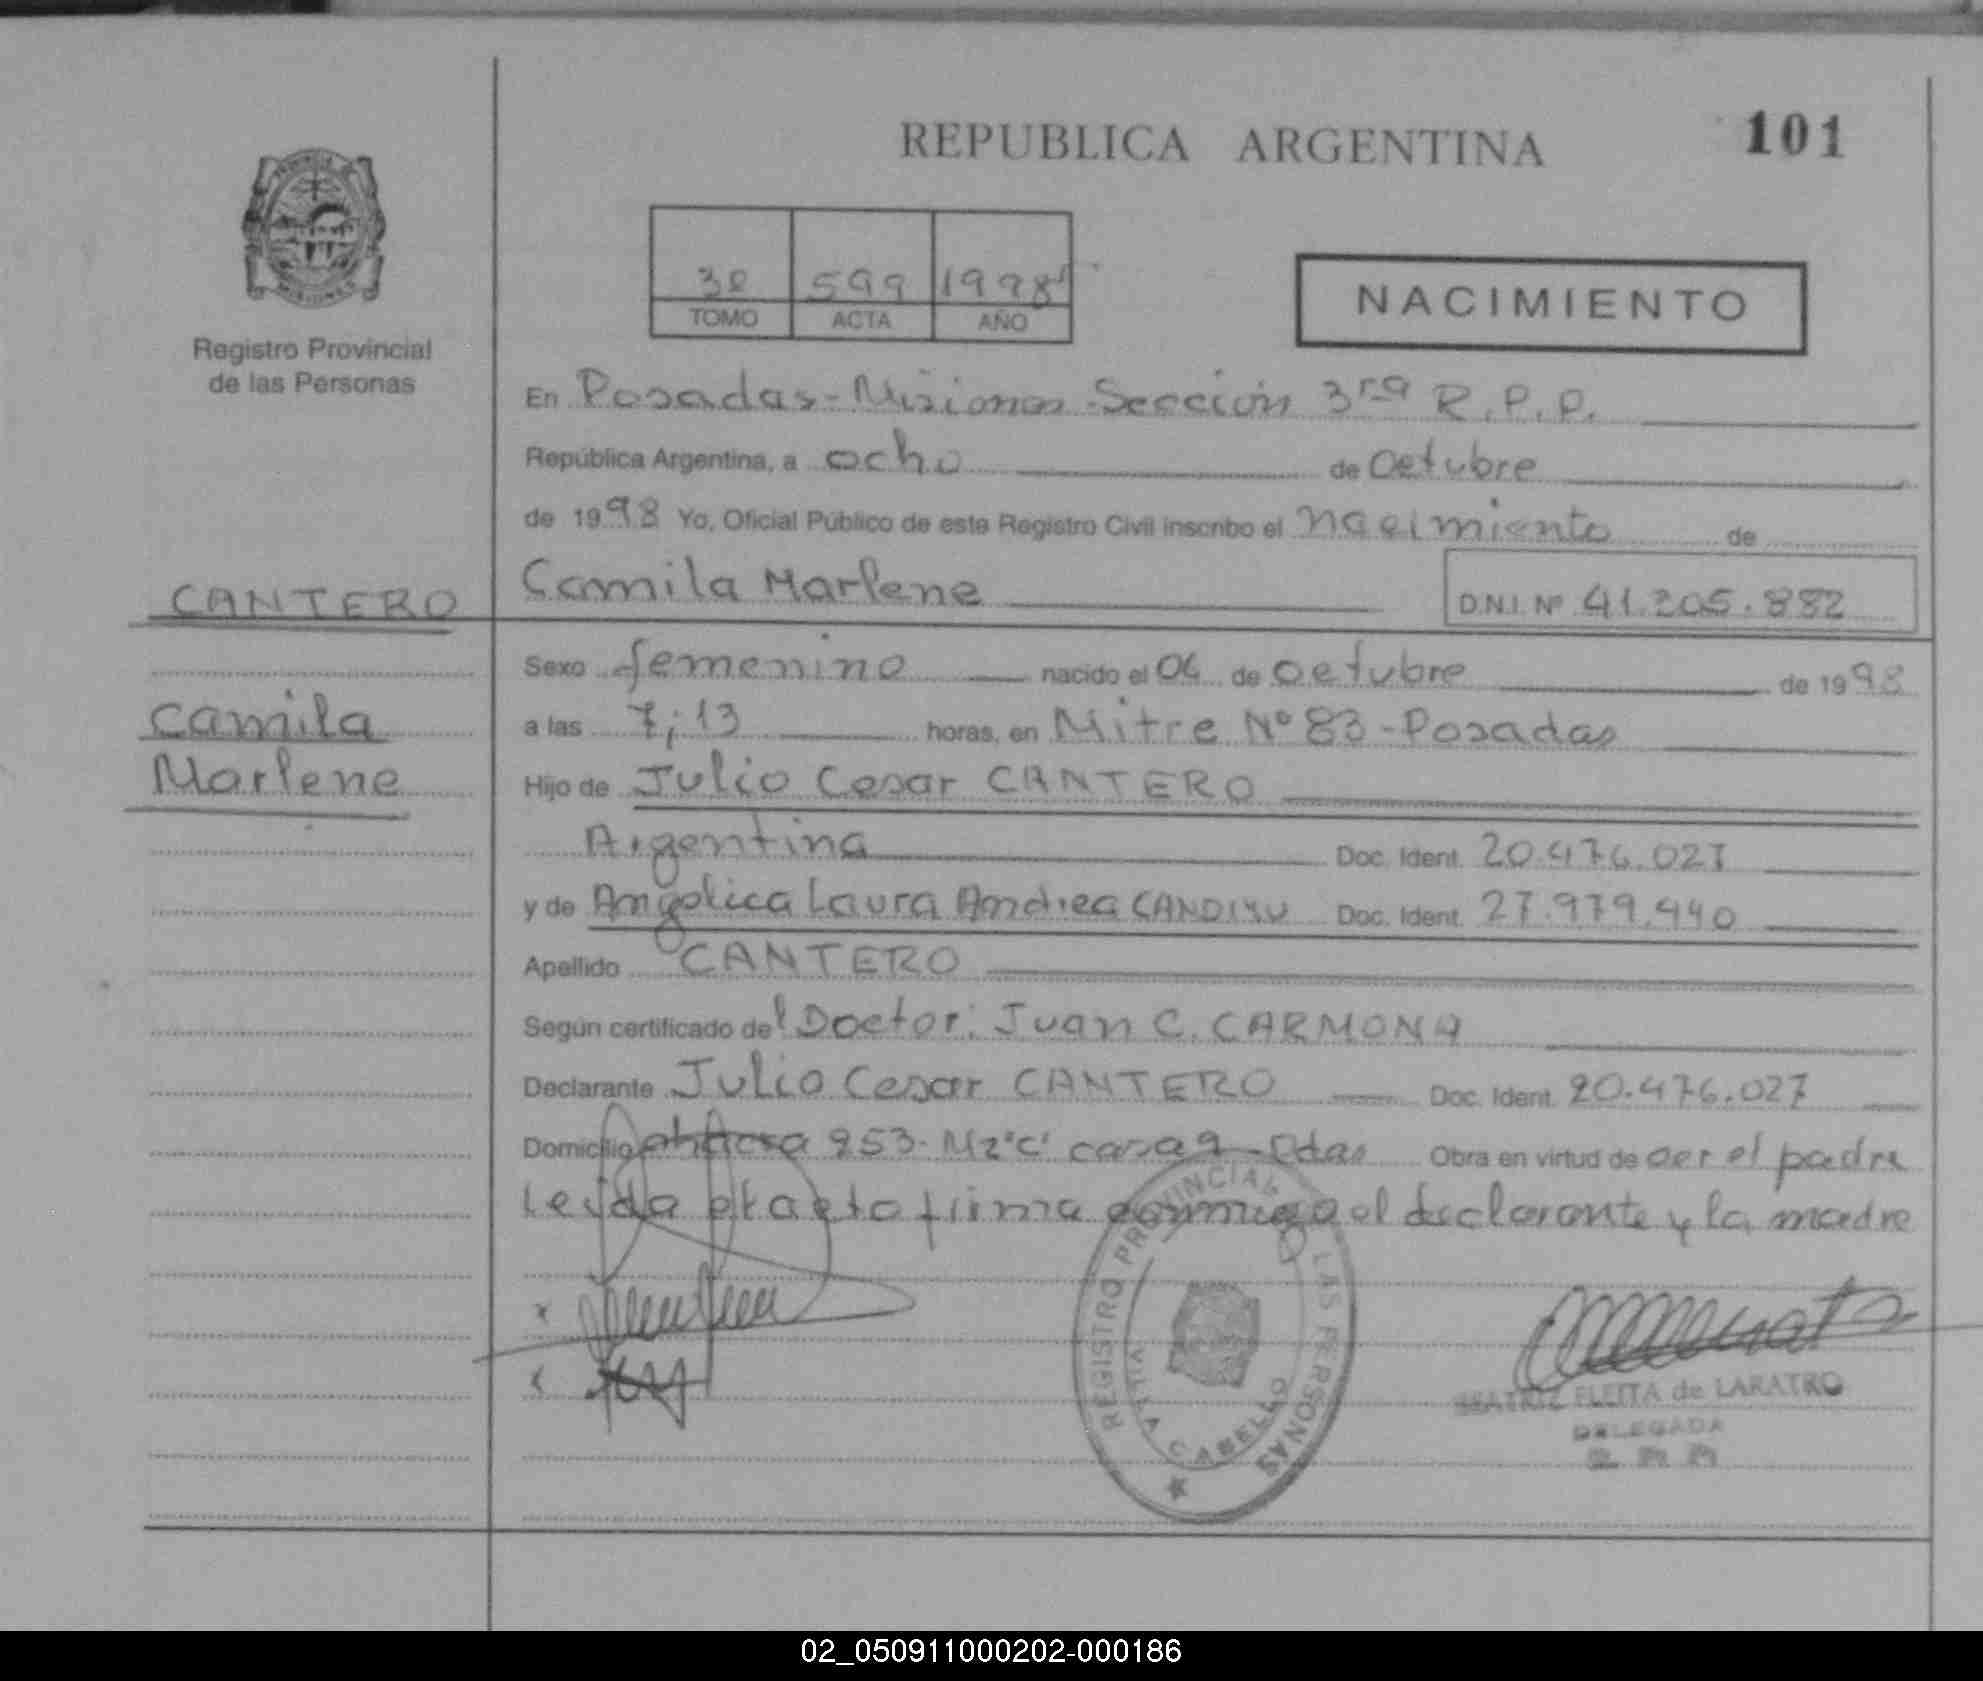 REPUBLICA ARGENTINA
101
PROVINCIA
MISIONES
Registro Provincial
de las Personas
599 1998
TOMO ACTA AÑO
NACIMIENTO
En Posadas - Misiones - Sección 3ra R.P.P.
República Argentina, a ocho de Octubre
de 1998 Yo, Oficial Público de este Registro Civil inscribo el nacimiento de
CANTERO
Camila Marlene
D.N.I. Nº 41.205.882
Sexo femenino nacido el 04 de octubre de 1998
Camila
a las 7;13 horas, en Mitre Nº 83 - Posadas
Marlene
Hijo de Julio Cesar CANTERO
Argentina Doc. Ident. 20.476.027
y de Angelica Laura Andrea Doc. Ident. 27.979.440
Apellido CANTERO
Según certificado del Doctor: Juan C. CARMONA
Declarante Julio Cesar CANTERO Doc. Ident. 20.476.027
Domicilio chacra 253 - Mz "C" casa 9 - Pdas Obra en virtud de ser el padre
Leida el acta firma conmigo el declarante y la madre
REGISTRO PROVINCIAL LAS PERSONAS
VILLA CABELLO
BEATRIZ FLEITA de LARATRO
DELEGADA
02_050911000202-000186